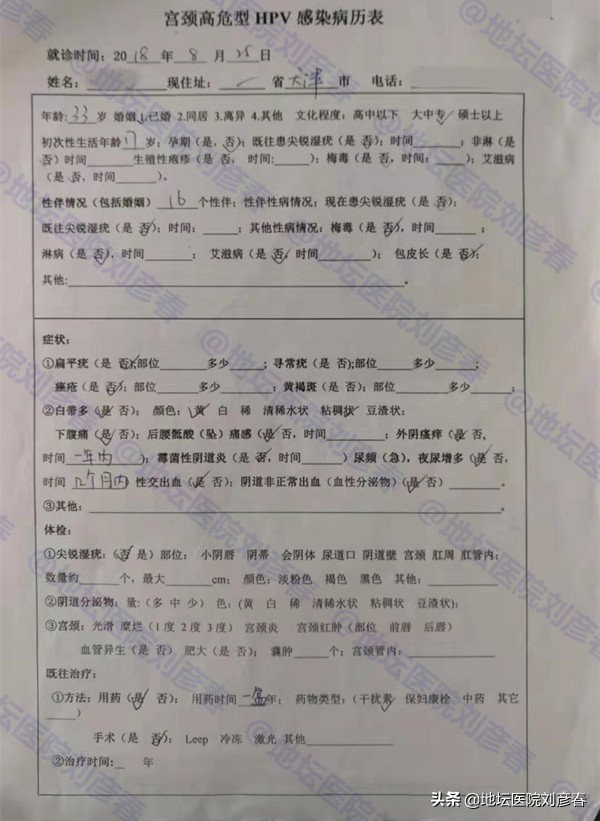 宫颈高危型 HPV 感染病历表
就诊时间：2018 年 8 月 25 日
姓名： 现住址： 省 天津 市 电话：
年龄：33 岁 婚姻 1.已婚 2.同居 3.离异 4.其他 文化程度：高中以下 大中专 硕士以上
初次性生活年龄 岁；孕期（是，否）；既往患尖锐湿疣（是 否）；时间______；非淋（是
否）时间______生殖性疱疹（是 否， 时间：_____）；梅毒（是 否，时间：_____）；艾滋病
（是 否，时间______）。
性伴情况（包括婚姻） 16 个性伴；性伴性病情况：现在患尖锐湿疣（是 否）；
既往尖锐湿疣（是 否）；时间：_____；其他性病情况：梅毒（是 否），时间______；
淋病（是 否），时间_______； 艾滋病（是 否，时间________）； 包皮长（是 否）；
其他：________。
症状：
①扁平疣（是 否）；部位______多少_____；寻常疣（是 否）；部位_____多少_____；
痤疮（是 否）；部位_____多少_____；黄褐斑（是 否）；部位______多少_____；
②白带多（是 否）； 颜色：黄 白 稀 清稀水状 粘稠状 豆渣状；
下腹痛（是 否）；后腰骶酸（坠）痛感（是 否，时间________； 外阴瘙痒（是 否，
时间 一年内 ）；霉菌性阴道炎（是 否，时间_____）尿频（急），夜尿增多（是 否，
时间 几个月内 性交出血（是 否）；阴道非正常出血（血性分泌物）（是 否）______。
③其他：________。
体检：
①尖锐湿疣：（否 是）部位： 小阴唇 阴蒂 会阴体 尿道口 阴道壁 宫颈 肛周 肛管内；
数量约_____个，最大______cm； 颜色：淡粉色 褐色 黑色 其他：________；
②阴道分泌物：量：（多 中 少） 色：（黄 白 稀 清稀水状 粘稠状 豆渣状）；
③宫颈：光滑 糜烂（1度 2度 3度） 宫颈炎 宫颈红肿（部位 前唇 后唇）
血管异生（是 否） 肥大（是 否）； 囊肿_____个；宫颈管内：________
既往治疗：
①方法：用药（是 否）； 用药时间 年； 药物类型：（干扰素 保妇康栓 中药 其它
_____）
手术（是 否）； Leep 冷冻 激光 其他________
②治疗时间：__ 年
@地坛医院刘彦春
头条 @地坛医院刘彦春